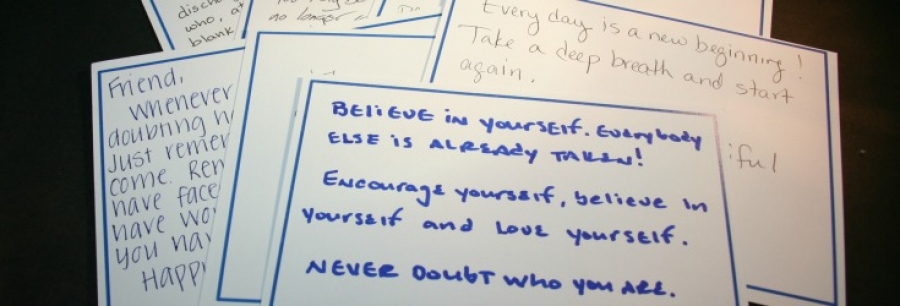 who, at
blank
no longer
Every day is a new beginning!
Take a deep breath and start
again.
iful
Friend,
Whenever
doubting
Just remem
come. Rem
have face
have wo
you hav
Happ
BELiEVE iN yourSElf. Everybody
ELSE iS ALREADy TAKEN!
Encourage yourself, believe in
yourself and Love yourself.
NEVER DoubT who you ARE.